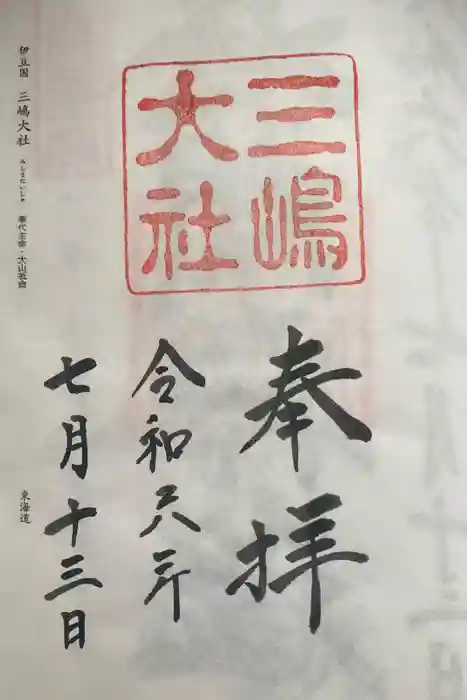 三嶋
大社
奉拝
令和六年
七月十三日
伊豆国 三嶋大社 みしまたいしゃ 事代主命・大山祇命
東海道